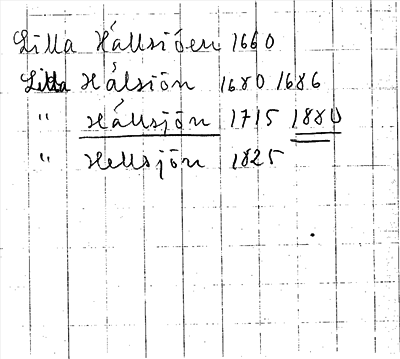 Lilla Hållsiöen 1660
Lilla Hålsiön 1680 1686
" Hållsjön 1715 1880
" Hellsjön 1825